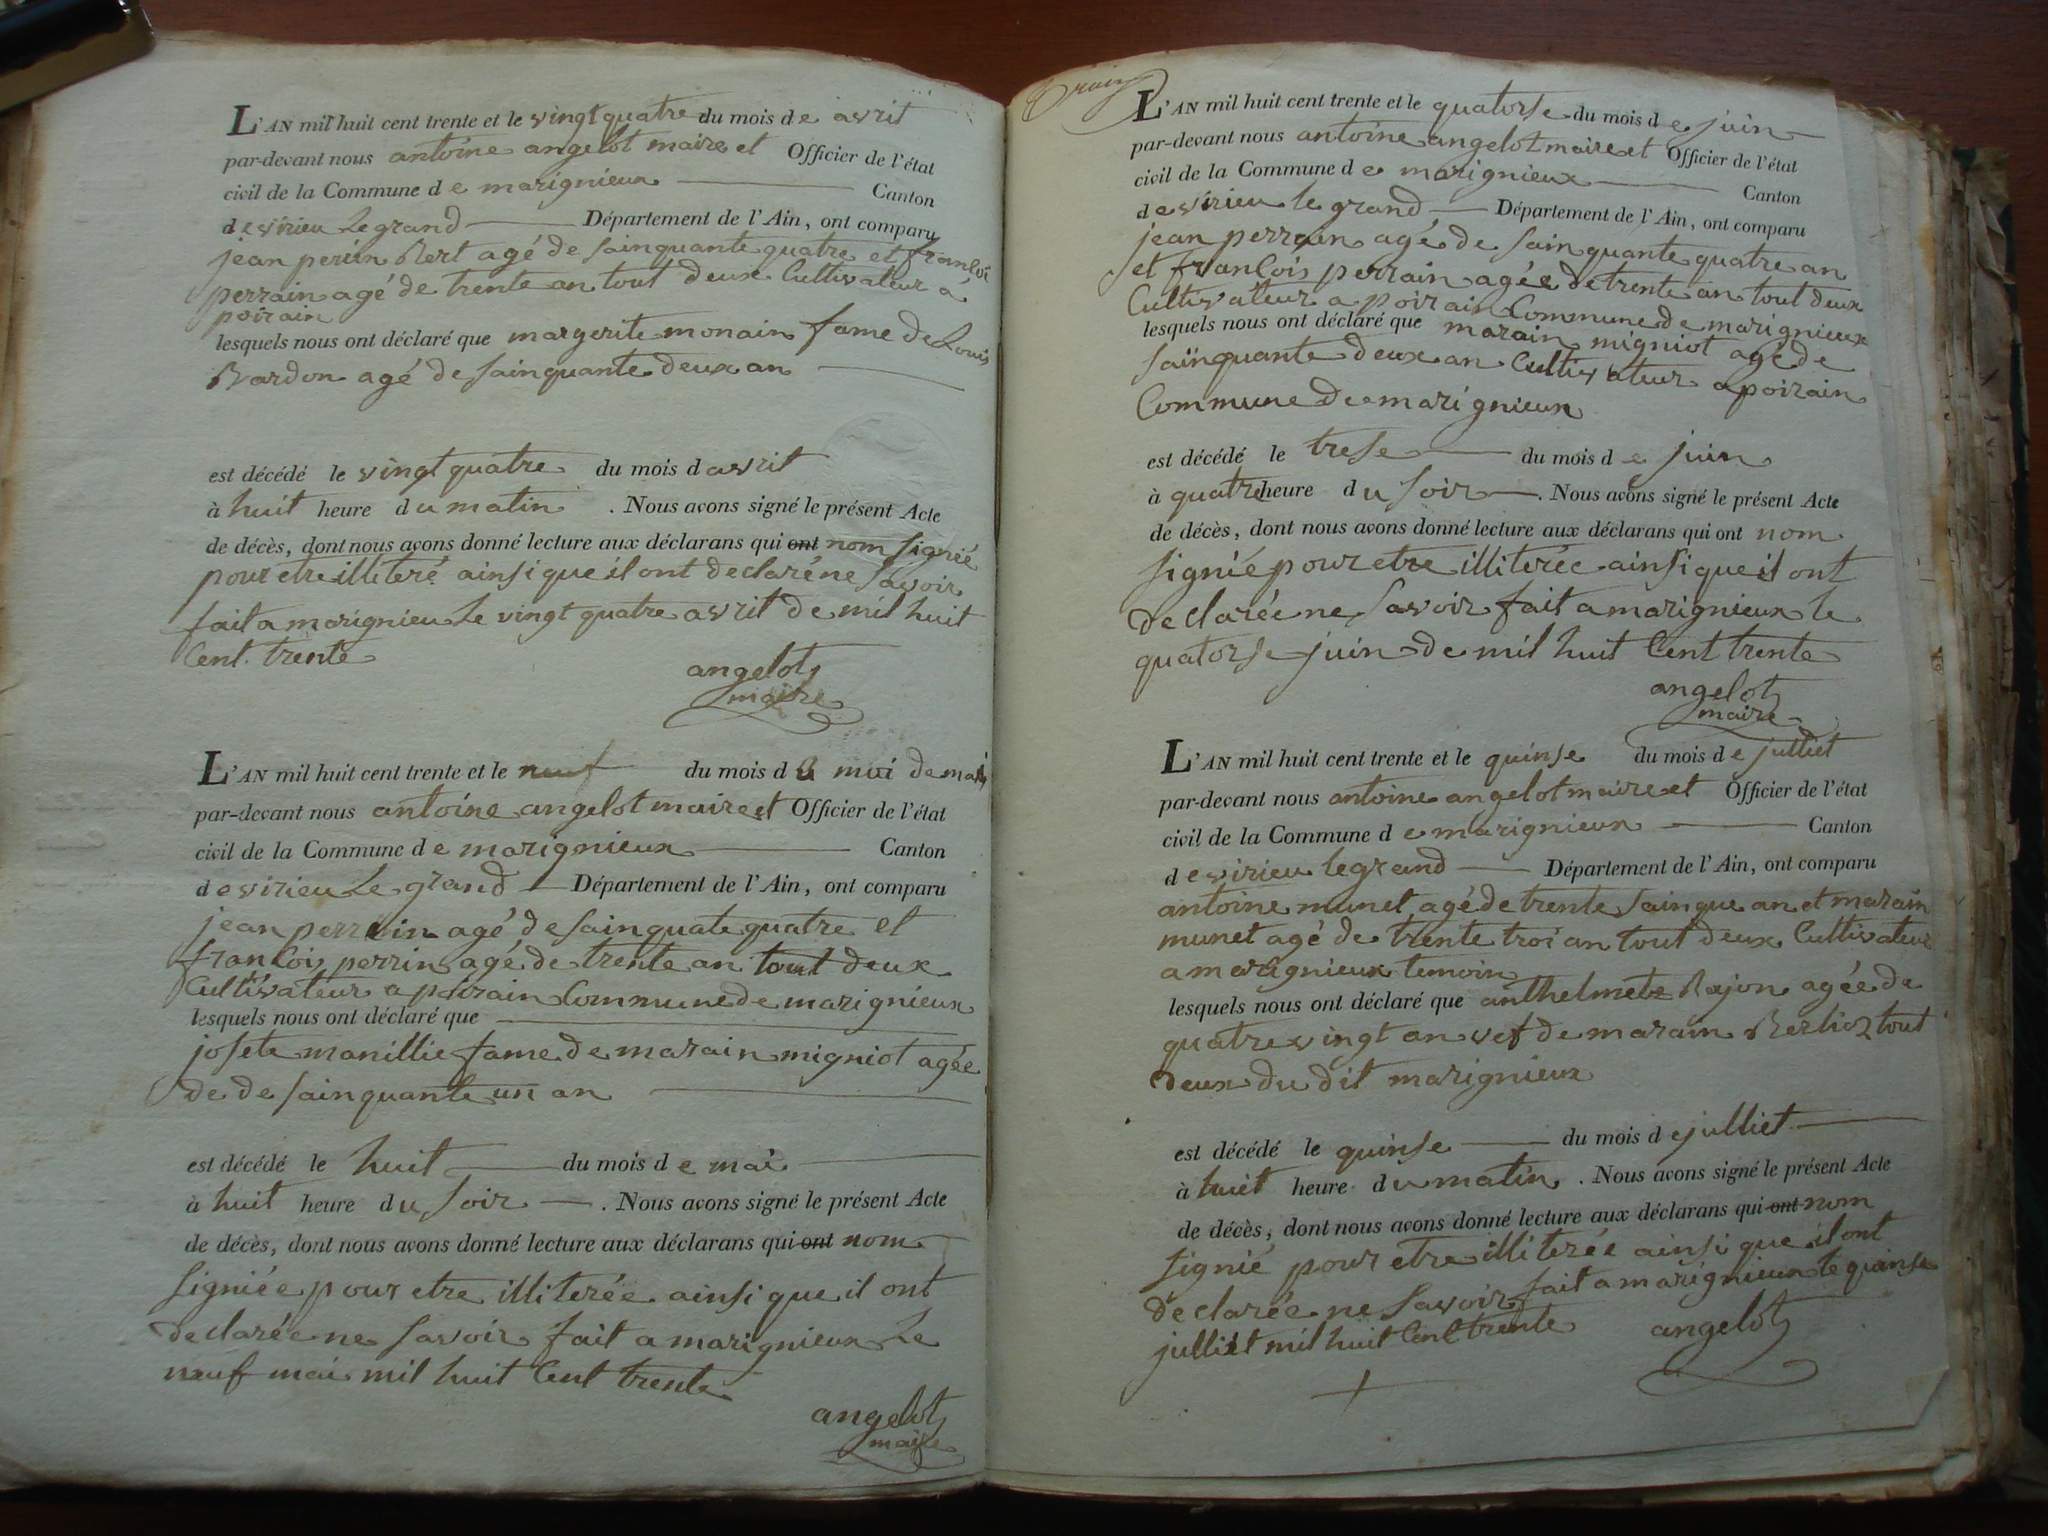 L'AN mil huit cent trente et le vingt quatre du mois de avril
par-devant nous antoine angelot maire et Officier de l'état
civil de la Commune de marignieux Canton
de virieu Le grand Département de l'Ain, ont comparu
jean perrin Bert agé de sainquante quatre et francois
perrain agé de trente an tout deux Cultivateur à
poirain
lesquels nous ont déclaré que margerite monain fame de Louis
Bardon agé de sainquante deux an
est décédé le vingt quatre du mois d avril
à huit heure du matin . Nous avons signé le présent Acte
de décès, dont nous avons donné lecture aux déclarans qui ont nom signié
pour etre illiteré ainsi que il ont declaré ne savoir
fait a marignieu Le vingt quatre avril de mil huit
Cent trente
angelot
maire
L'AN mil huit cent trente et le neuf du mois de mai de mai
par-devant nous antoine angelot maire et Officier de l'état
civil de la Commune de marignieux Canton
de virieu Le grand Département de l'Ain, ont comparu
jean perrin agé de sainquate quatre et
francois perrin agé de trente an tout deux
Cultivateur a poirain Commune de marignieux
lesquels nous ont déclaré que
josete manillie fame de marain migniot agée
de de sainquante un an
est décédé le huit du mois de mai
à huit heure du soir . Nous avons signé le présent Acte
de décès, dont nous avons donné lecture aux déclarans qui ont nom
signiée pour etre illiterée ainsi que il ont
declarée ne savoir fait a marignieux Le
neuf mai mil huit Cent trente
angelot
maire
L'AN mil huit cent trente et le quatorse du mois de juin
par-devant nous antoine angelot maire et Officier de l'état
civil de la Commune de marignieux Canton
de virieu le grand Département de l'Ain, ont comparu
jean perrain agé de sainquante quatre an
et francois perrain agée de trente an tout deux
Cultivateur a poirain Commune de marignieux
lesquels nous ont déclaré que marain migniot agé de
sainquante deux an Cultivateur a poirain
Commune de marignieux
est décédé le trese du mois de juin
à quatre heure du soir . Nous avons signé le présent Acte
de décès, dont nous avons donné lecture aux déclarans qui ont nom
signié pour etre illiterée ainsi que il ont
declarée ne savoir fait a marignieux le
quatorse juin de mil huit Cent trente
angelot
maire
L'AN mil huit cent trente et le quinse du mois de julliet
par-devant nous antoine angelot maire et Officier de l'état
civil de la Commune de marignieux Canton
de virieu le grand Département de l'Ain, ont comparu
antoine munet agé de trente sainque an et marain
munet agé de trente troi an tout deux Cultivateur
a marignieux temoin
lesquels nous ont déclaré que anthelmete Rojon agée de
quatre vingt an vef de marain Berlioz tout
deux du dit marignieux
est décédé le quinse du mois de julliet
à huit heure du matin . Nous avons signé le présent Acte
de décès, dont nous avons donné lecture aux déclarans qui ont nom
signié pour etre illiterée ainsi que il ont
declarée ne savoir fait a marignieux le quinse
julliet mil huit Cent trente angelot